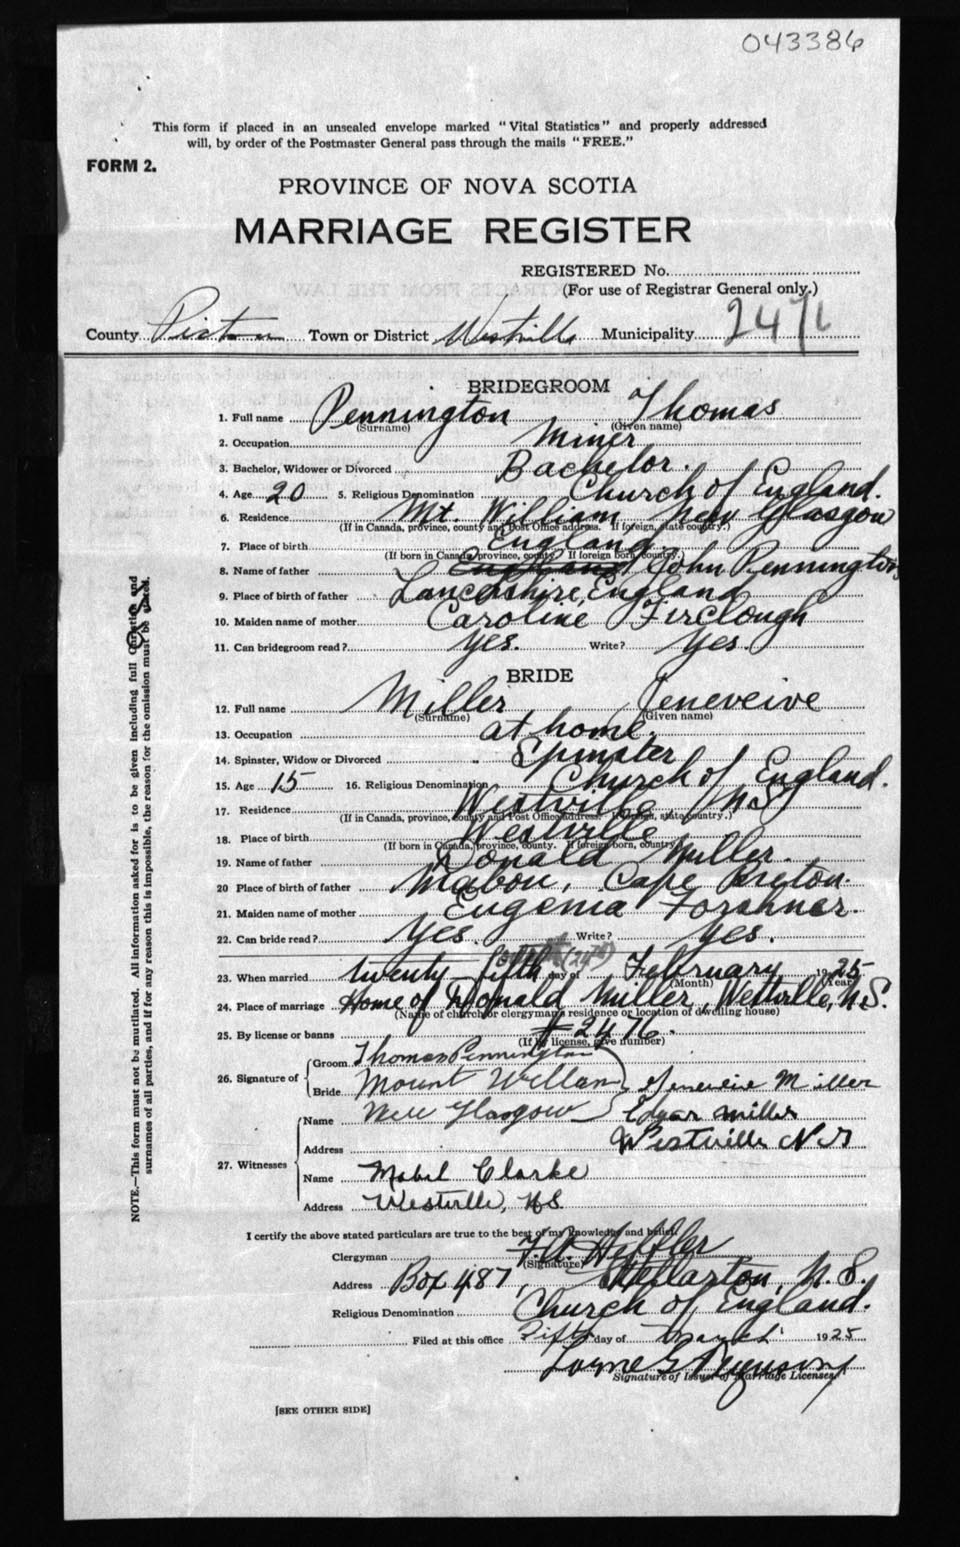 043386
This form if placed in an unsealed envelope marked "Vital Statistics" and properly addressed
will, by order of the Postmaster General pass through the mails "FREE."
FORM 2.
PROVINCE OF NOVA SCOTIA
MARRIAGE REGISTER
REGISTERED No.
(For use of Registrar General only.)
County Pictou Town or District Westville Municipality 2476
BRIDEGROOM
1. Full name Pennington Thomas
(Surname) (Given name)
2. Occupation Miner
3. Bachelor, Widower or Divorced Bachelor.
4. Age 20 5. Religious Denomination Church of England.
6. Residence Mt. William New Glasgow
(If in Canada, province, county and Post Office address. If foreign, state country.)
7. Place of birth England
(If born in Canada, province, county. If foreign born, country.)
8. Name of father England John Pennington
9. Place of birth of father Lancashire, England
10. Maiden name of mother Caroline Firclough
11. Can bridegroom read? Yes. Write? Yes.
BRIDE
12. Full name Miller Jeneveive
(Surname) (Given name)
13. Occupation at home.
14. Spinster, Widow or Divorced Spinster
15. Age 15 16. Religious Denomination Church of England.
17. Residence Westville N.S.
(If in Canada, province, county and Post Office address. If foreign, state country.)
18. Place of birth Westville
(If born in Canada, province, county. If foreign born, country.)
19. Name of father Donald Miller.
20 Place of birth of father Mabou, Cape Breton.
21. Maiden name of mother Eugenia Forshner.
22. Can bride read? Yes. Write? Yes.
(24th)
23. When married twenty-fifth day of February 1925
(Month) (Year)
24. Place of marriage Home of Donald Miller, Westville, N.S.
(Name of church or clergyman's residence or location of dwelling house)
25. By license or banns # 2476.
(If by license, give number)
26. Signature of
Groom Thomas Pennington
Bride Mount William Jeneveive Miller
New Glasgow
27. Witnesses
Name Edgar Miller
Address Westville N.S
Name Mabel Clarke
Address Westville, N.S.
I certify the above stated particulars are true to the best of my knowledge and belief.
Clergyman
(Signature)
Address Box 487, Stellarton, N.S.
Religious Denomination Church of England.
Filed at this office Fifth day of March 1925
Lorne G
Signature of Issuer of Marriage Licenses
[SEE OTHER SIDE]
NOTE.—This form must not be mutilated. All information asked for is to be given including full Christian and
surnames of all parties, and if for any reason this is impossible, the reason for the omission must be stated.